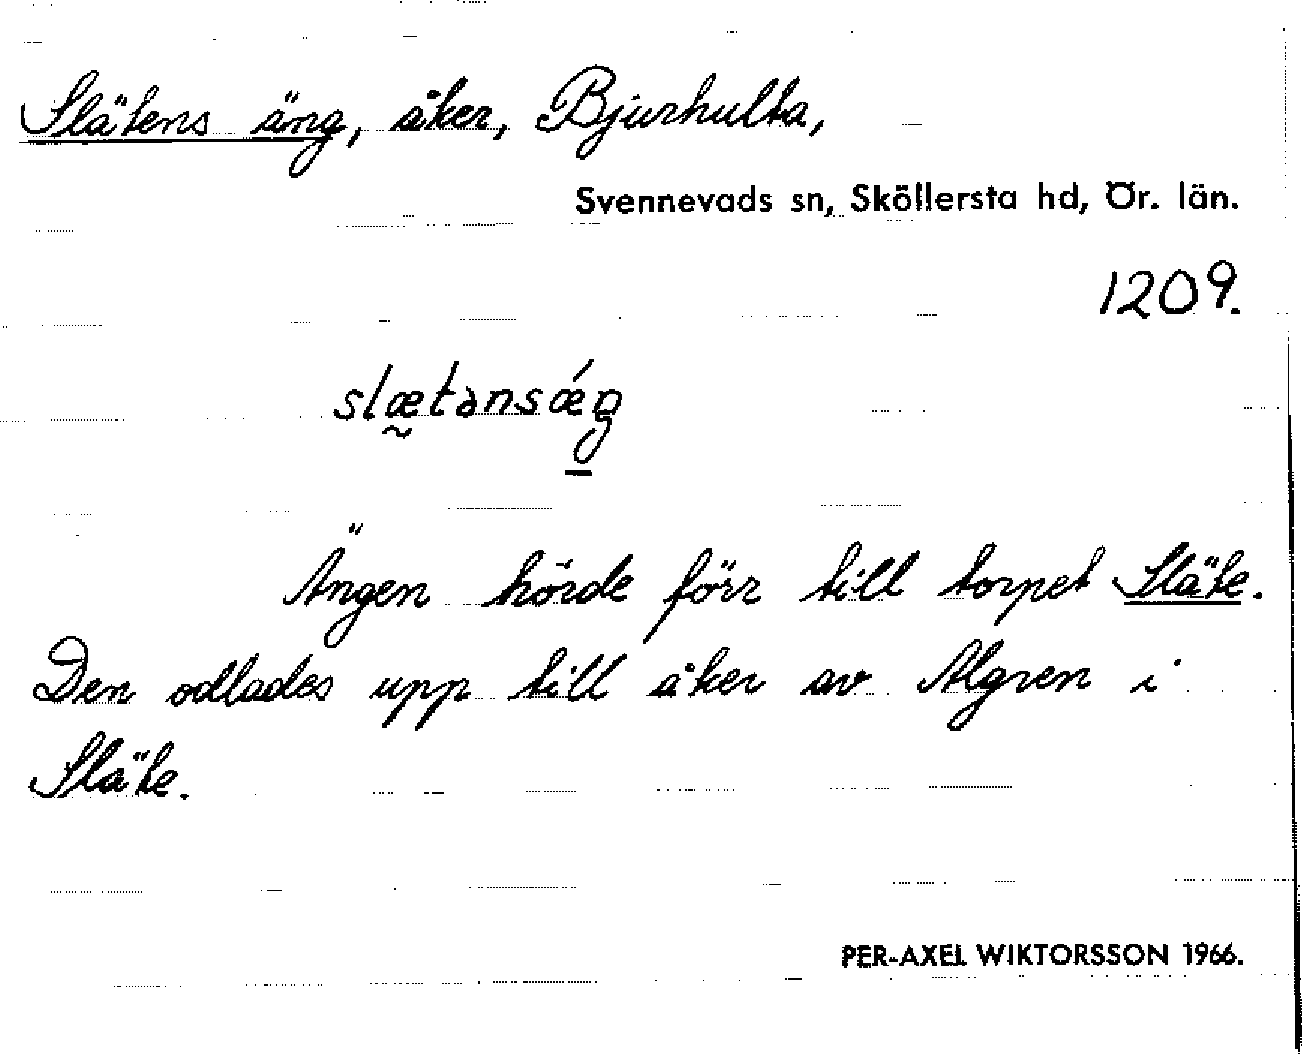 Slätens äng, åker, Bjurhulta,
Svennevads sn, Sköllersta hd, Ör. län.
1209.
slæ̰tənsǽŋ
Ängen hörde förr till torpet Släte.
Den odlades upp till åker av Algren i
Släte.
PER-AXEL WIKTORSSON 1966.